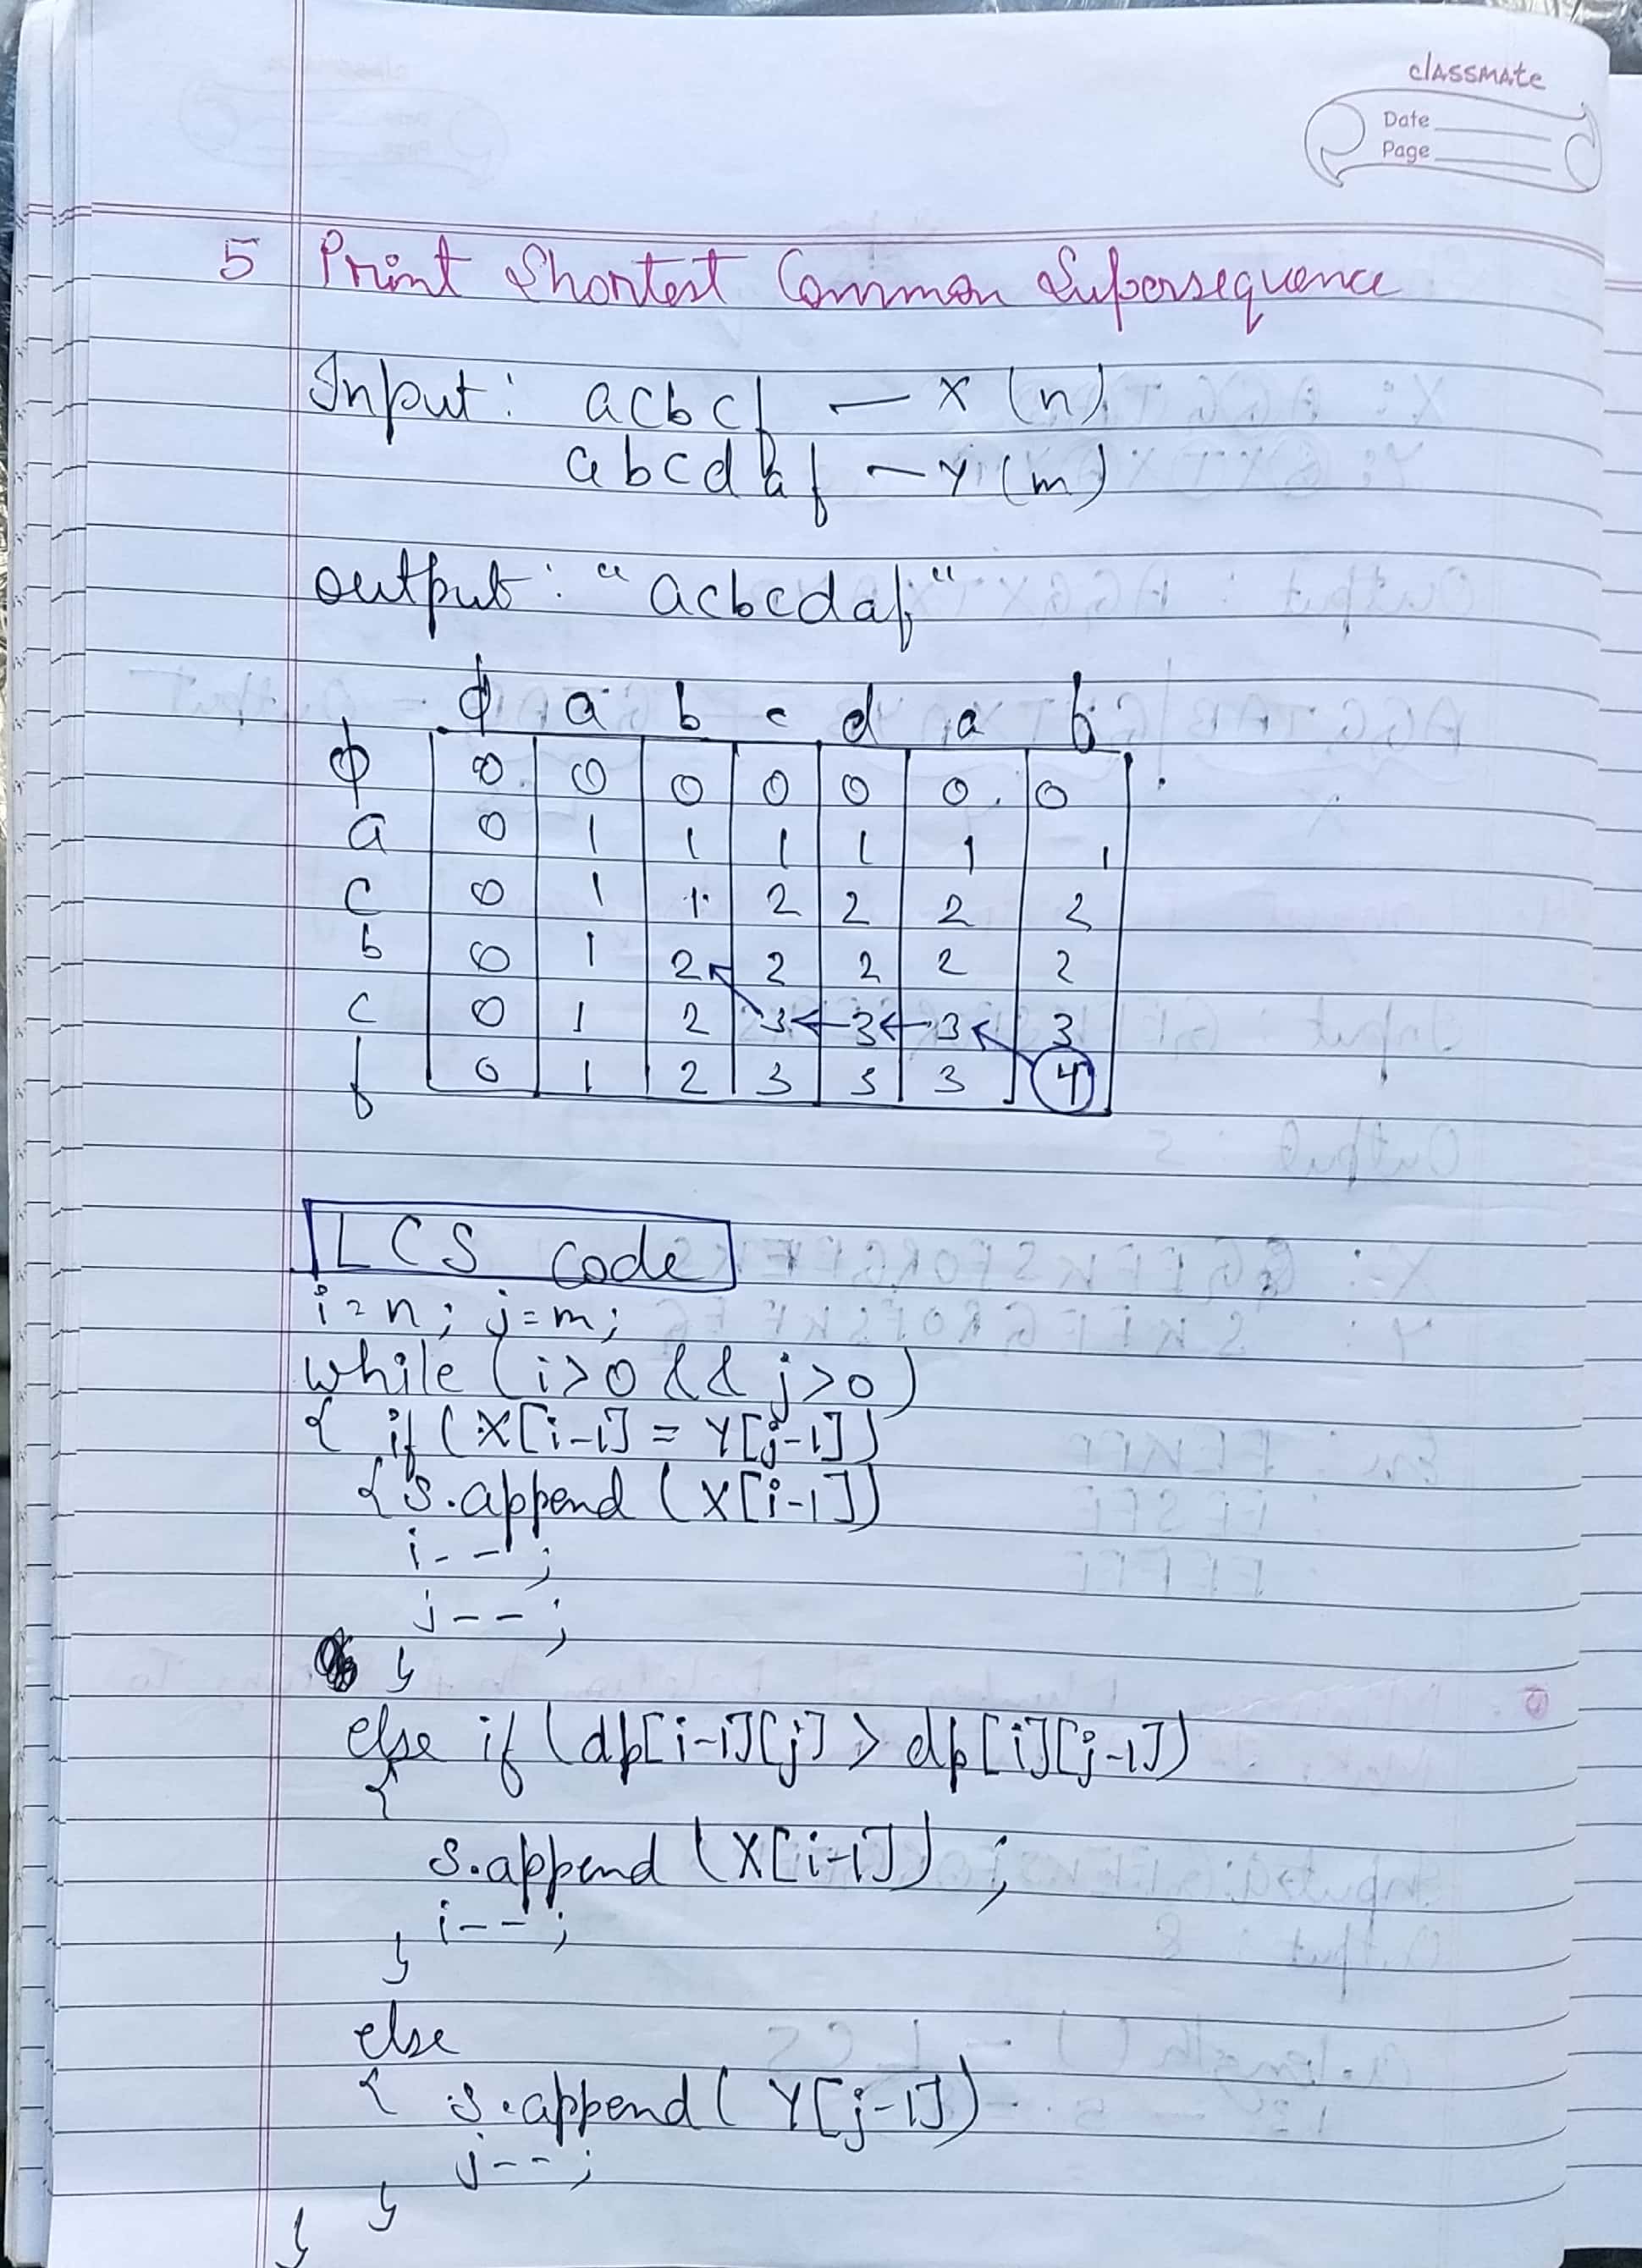 classmate
Date
Page
5 Print Shortest Common Supersequence
Input: acbcf — X (n)
abcdaf — Y (m)
output: "acbcdaf"
ϕ a b c d a f
ϕ 0 0 0 0 0 0 0
a 0 1 1 1 1 1 1
c 0 1 1 2 2 2 2
b 0 1 2 2 2 2 2
c 0 1 2 3 3 3 3
f 0 1 2 3 3 3 4
LCS code
i=n; j=m;
while (i>0 && j>0)
{ if (X[i-1] = Y[j-1])
{ s.append (X[i-1])
i--;
j--;
}
else if (dp[i-1][j] > dp[i][j-1])
{
s.append (X[i-1]);
i--;
}
else
{ s.append (Y[j-1])
j--;
}
}